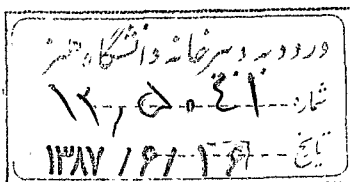 ورود به دبیرخانه دانشگاه هنر
شماره ۱۲,۵۰۴۱
تاریخ ۱۳۸۷/۶/۱۶